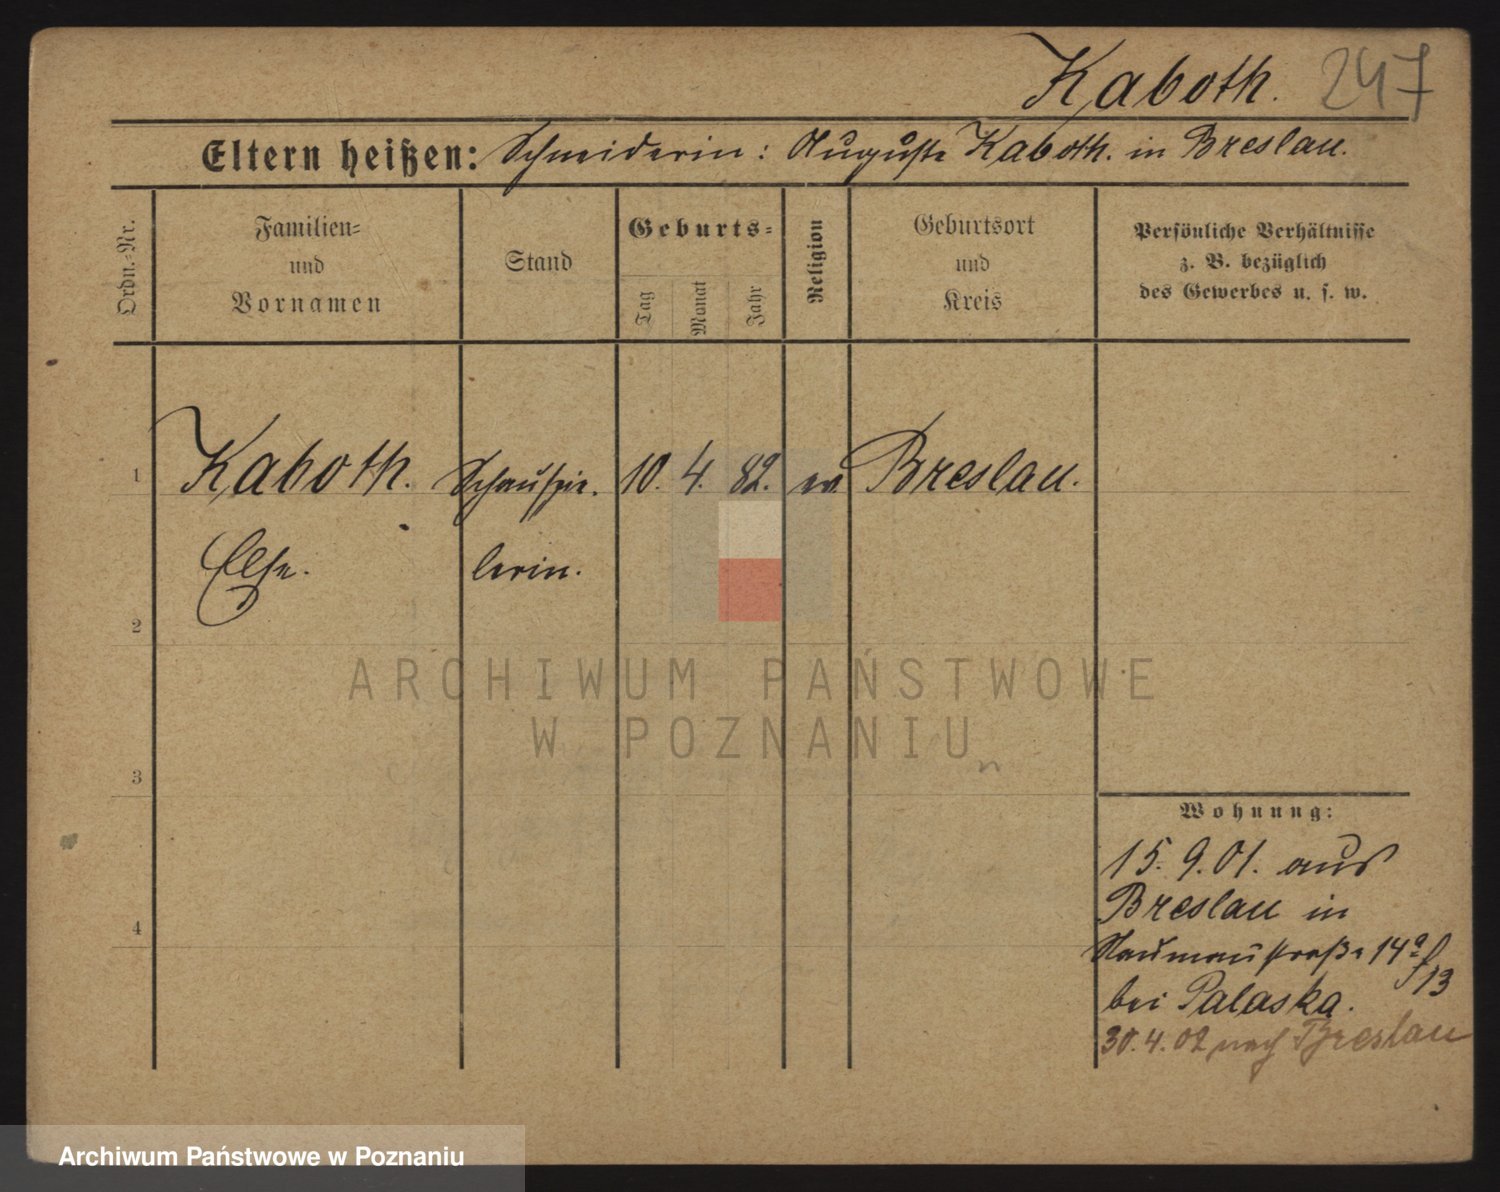 Kaboth. 247
Eltern heißen: Schneiderin: Auguste Kaboth. in Breslau.
Ordn.-Nr.
Familien-
und
Vornamen
Stand
Geburts-
Tag
Monat
Jahr
Religion
Geburtsort
und
Kreis
Persönliche Verhältnisse
z. B. bezüglich
des Gewerbes u. s. w.
1 Kaboth. Schauspie- 10. 4. 82. ev Breslau.
Else. lerin.
2
3
4
Wohnung:
15. 9. 01. aus
Breslau in
Naumannstraße 14a
13
bei Palaska.
30. 4. 02 nach Breslau
ARCHIWUM PAŃSTWOWE
W POZNANIU
Archiwum Państwowe w Poznaniu